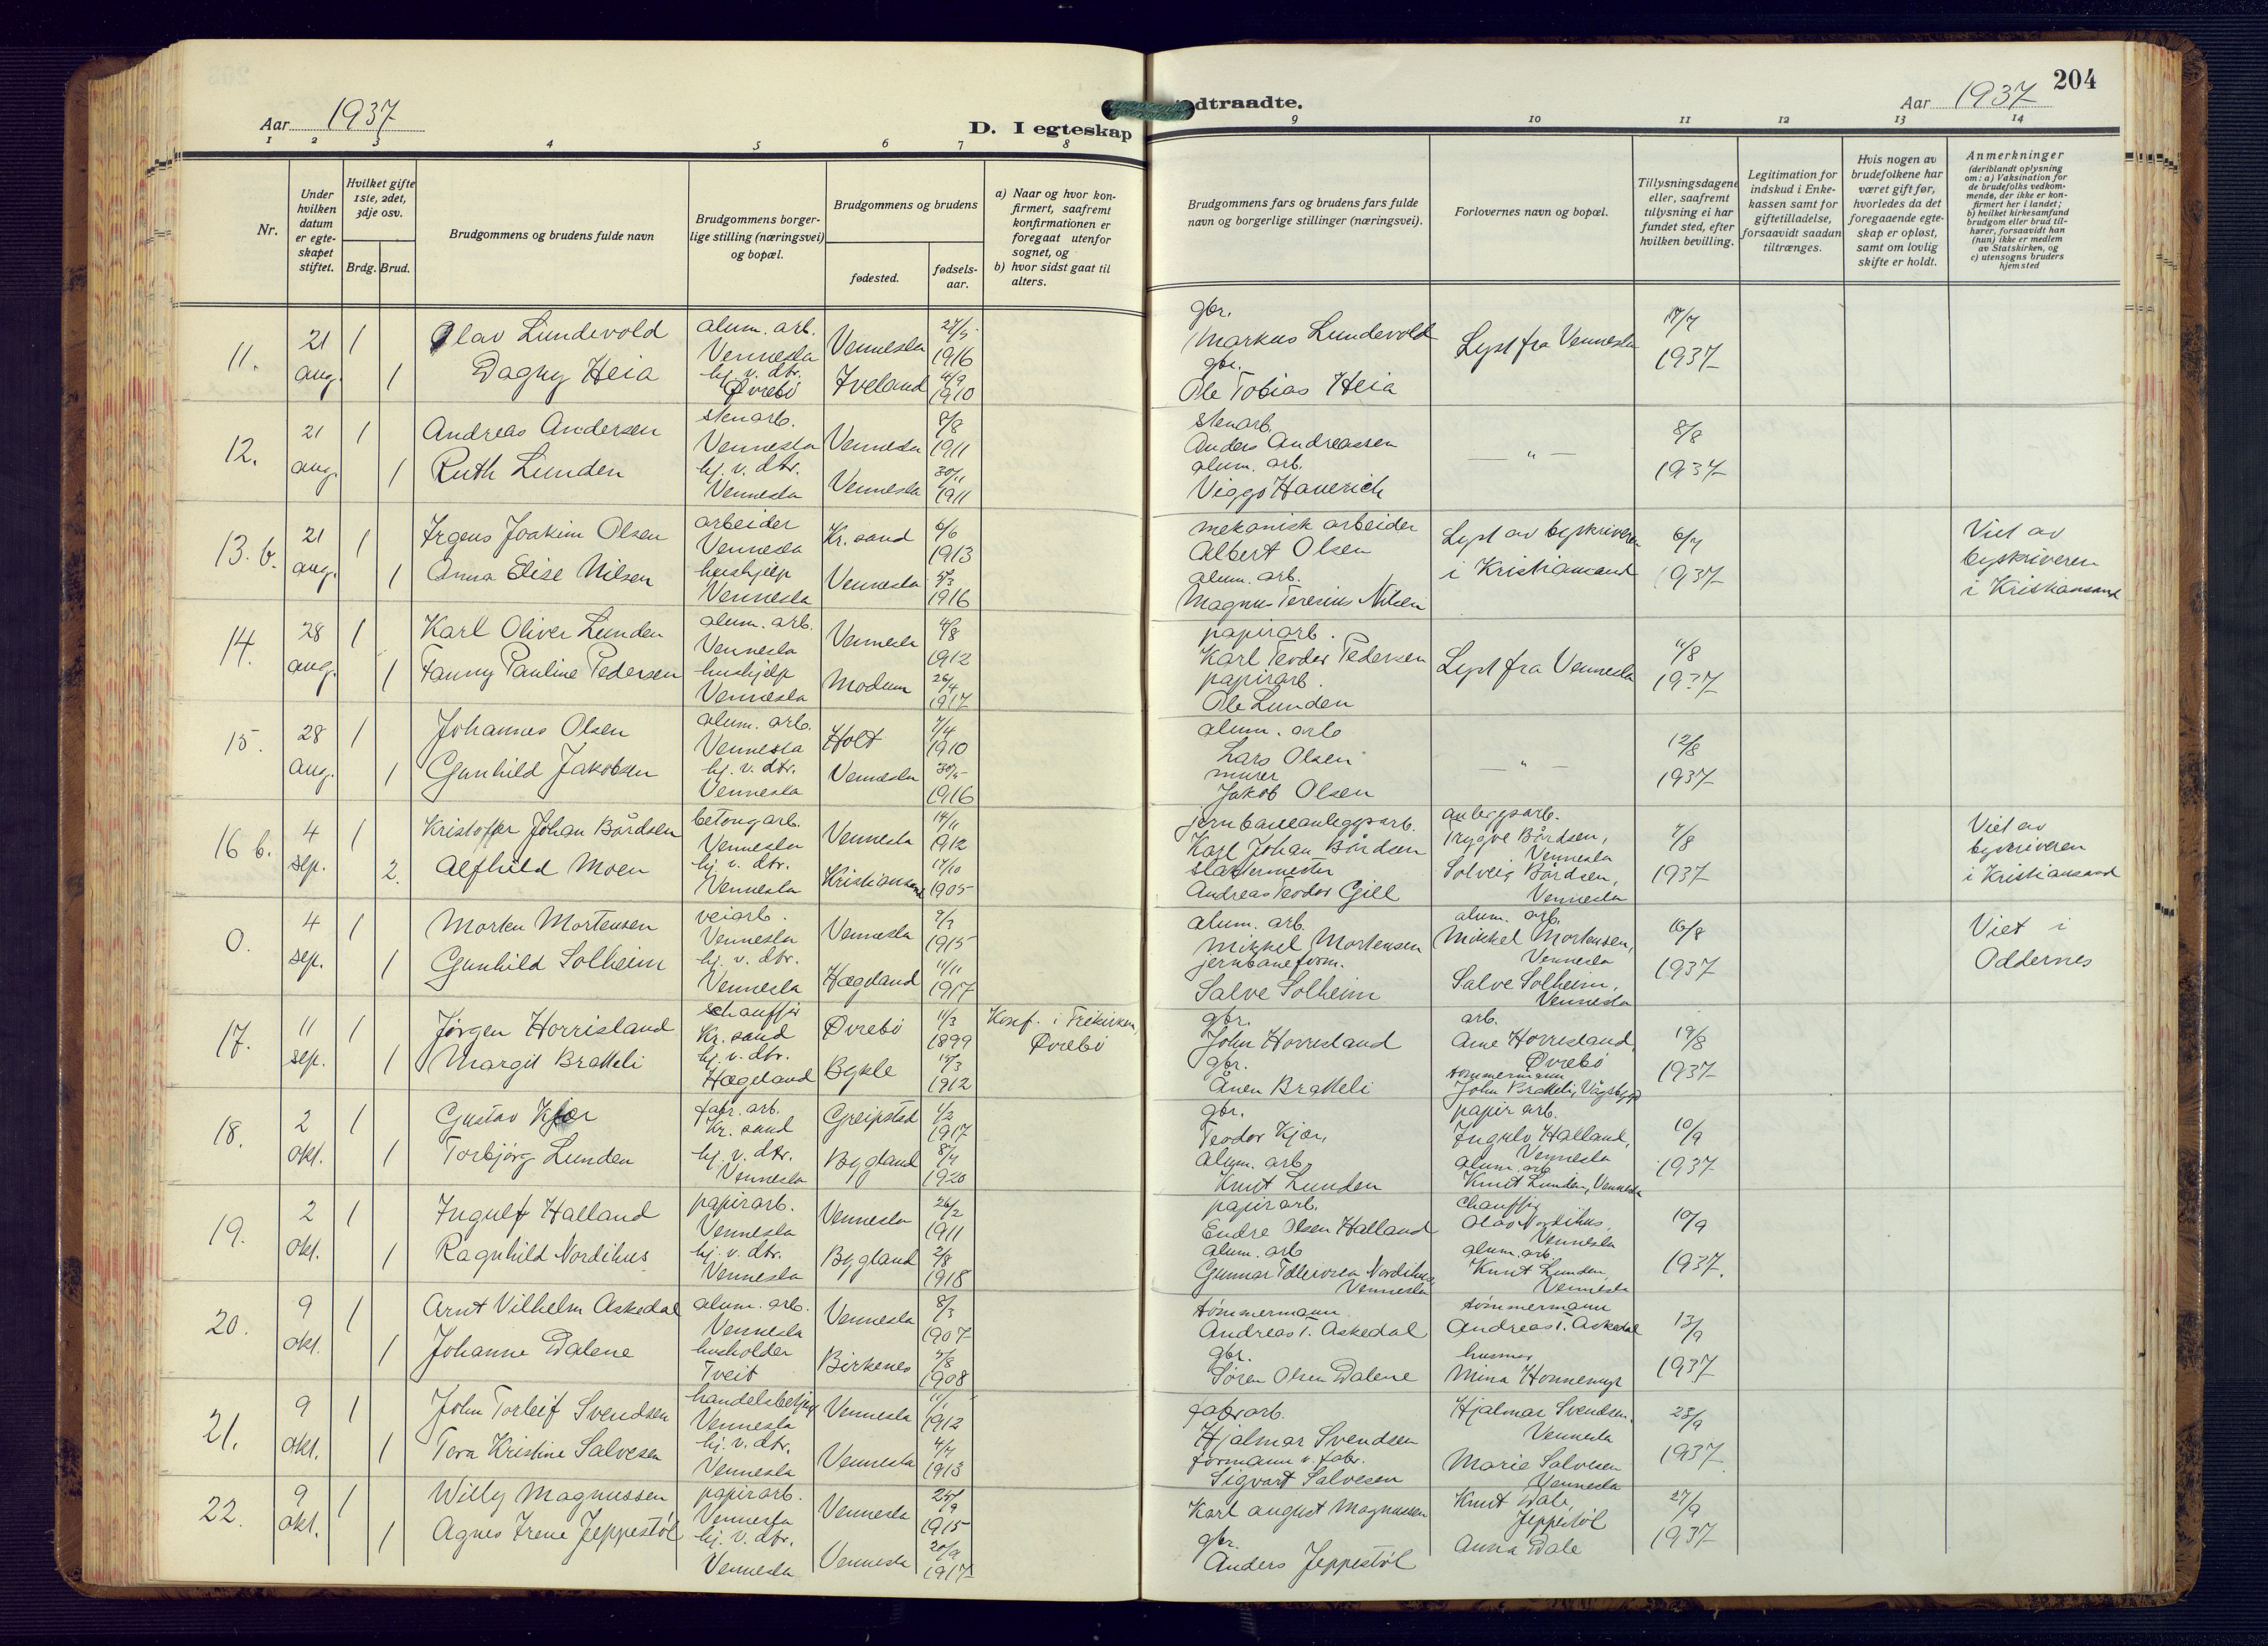 Aar 1937
D. I egteskap
1 2 3 4 5 6 7 8
Nr.
Under hvilken datum er egte-skapet stiftet.
Hvilket gifte 1ste, 2det, 3dje osv.
Brdg. Brud.
Brudgommens og brudens fulde navn
Brudgommens borger-lige stilling (næringsvei) og bopæl.
Brudgommens og brudens
fødested.
fødsels-aar.
a) Naar og hvor kon-firmert, saafremt konfirmationen er foregaat utenfor sognet, og
b) hvor sidst gaat til alters.
11. 21 aug. 1 Olav Lundevold alum. arb. Vennesla Vennesla 1916
1 Dagny Heia hj. v. dtr. Øvrebö Iveland 1910
12. 21 aug. 1 Andreas Andersen stenarb. Vennesla Vennesla 8/8 1911
1 Ruth Lunden hj. v. dtr. Vennesla Vennesla 30/11 1911
13. b. 21 aug. 1 Irgens Joakim Olsen arbeider Vennesla Kr. sand 6/6 1913
1 Anna Elise Nilsen hushjelp Vennesla Vennesla 1916
14. 28 aug. 1 Karl Oliver Lunden alum. arb. Vennesla Vennesla 1912
1 Fanny Pauline Pedersen hushjelp Vennesla Modum 26/4 1917
15. 28 aug. 1 Johannes Olsen alum. arb. Vennesla Holt 1910
1 Gunhild Jakobsen hj. v. dtr. Vennesla Vennesla 30/5 1916
16 b. 4 sep. 1 Kristoffer Johan Bårdsen betongarb. Vennesla Vennesla 14/11 1912
2. Alfhild Moen hj. v. dtr. Vennesla Kristiansand 17/10 1905
0. 4 sep. 1 Morten Mortensen veiarb. Vennesla Vennesla 1915
1 Gunhild Solheim hj. v. dtr. Vennesla Hægeland 11/11 1917
17. 11 sep. 1 Jørgen Horrisland schauffør Kr. sand Øvrebö 11/3 1899 Konf. i Frikirken, Øvrebö
1 Margit Bratteli hj. v. dtr. Hægeland Bykle 1912
18. 2 okt. 1 Gustav Kjær fabr. arb. Kr. sand Greipstad 1/2 1917
1 Torbjörg Lunden hj. v. dtr. Vennesla Bygland 1920
19. 2 okt. 1 Ingulf Halland papirarb. Vennesla Vennesla 26/2 1911
1 Ragnhild Nordihus hj. v. dtr. Vennesla Bygland 2/8 1918
20. 9 okt. 1 Arnt Vilhelm Askedal alum. arb. Vennesla Vennesla 8/3 1907
1 Johanne Dalene husholder Tveit Birkenes 1908
21. 9 okt. 1 John Torleif Svendsen Vennesla Vennesla 11/1 1912
1 Tora Kristine Salvesen hj. v. dtr. Vennesla Vennesla 1913
22. 9 okt. 1 Willy Magnussen papirarb. Vennesla Vennesla 25/9 1915
1 Agnes Irene Jeppestøl hj. v. dtr. Vennesla Vennesla 20/9 1917
204
Aar 1937
indtraadte.
9 10 11 12 13 14
Brudgommens fars og brudens fars fulde navn og borgerlige stillinger (næringsvei).
Forlovernes navn og bopæl.
Tillysningsdagene eller, saafremt tillysning ei har fundet sted, efter hvilken bevilling.
Legitimation for indskud i Enke-kassen samt for giftetilladelse, forsaavidt saadan tiltrænges.
Hvis nogen av brudefolkene har været gift før, hvorledes da det foregaaende egte-skap er opløst, samt om lovlig skifte er holdt.
Anmerkninger (deriblandt oplysning om: a) Vaksination for de brudefolks vedkom-mende, der ikke er kon-firmert her i landet; b) hvilket kirkesamfund brudgom eller brud til-hører, forsaavidt han (hun) ikke er medlem av Statskirken, og c) utensogns bruders hjemsted
gbr. Markus Lundevold Lyst fra Vennesla 17/7 1937
gbr. Ole Tobias Heia
stenarb. Anders Andreassen — „ — 8/8 1937
alum. arb. Viggo Hauerich
mekanisk arbeider Albert Olsen Lyst av byskriveren i Kristiansand 6/7 1937 Viet av byskriveren i Kristiansand
alum. arb. Magnus Teresius Nilsen
papirarb. Karl Teodor Pedersen Lyst fra Vennesla 11/8 1937
papirarb. Ole Lunden
alum. arb Lars Olsen — „ — 12/8 1937
murer Jakob Olsen
jernbaneanleggsarb. Karl Johan Bårdsen anleggsarb. Trygve Bårdsen, Vennesla 1937 Viet av byskriveren i Kristiansand
slaktermester Andreas Teodor Gill Solveig Bårdsen, Vennesla
alum. arb. Mikkel Mortensen alum. arb. Mikkel Mortensen, Vennesla 16/8 1937 Viet i Oddernes
jernbaneform. Salve Solheim Salve Solheim, Vennesla
gbr. John Horrisland arb. Arne Horrisland, Øvrebö 19/8 1937
gbr. Ånen Bratteli tømmermann John Bratteli, Vågsbygd
gbr. Teodor Kjær, papir arb. Ingulv Halland, Vennesla 10/9 1937
alum. arb. Knut Lunden alum. arb Knut Lunden, Vennesla
papirarb. Endre Olsen Halland chauffør Olav Nordihus, Vennesla 10/9 1937.
alum. arb Gunnar Nordihus, Vennesla alum. arb. Knut Lunden, Vennesla
tömmermann Andreas T. Askedal tömmermann Andreas T. Askedal 13/9 1937
gbr. Søren Olsen Dalene husmor Mina
fabr arb. Hjalmar Svendsen Hjalmar Svendsen, Vennesla 23/9 1937
formann v. fabr. Sigvart Salvesen Marie Salvesen Vennesla
Karl August Magnussen Knut Dale, Jeppestöl 27/9 1937
gbr. Anders Jeppestöl Anna Dale